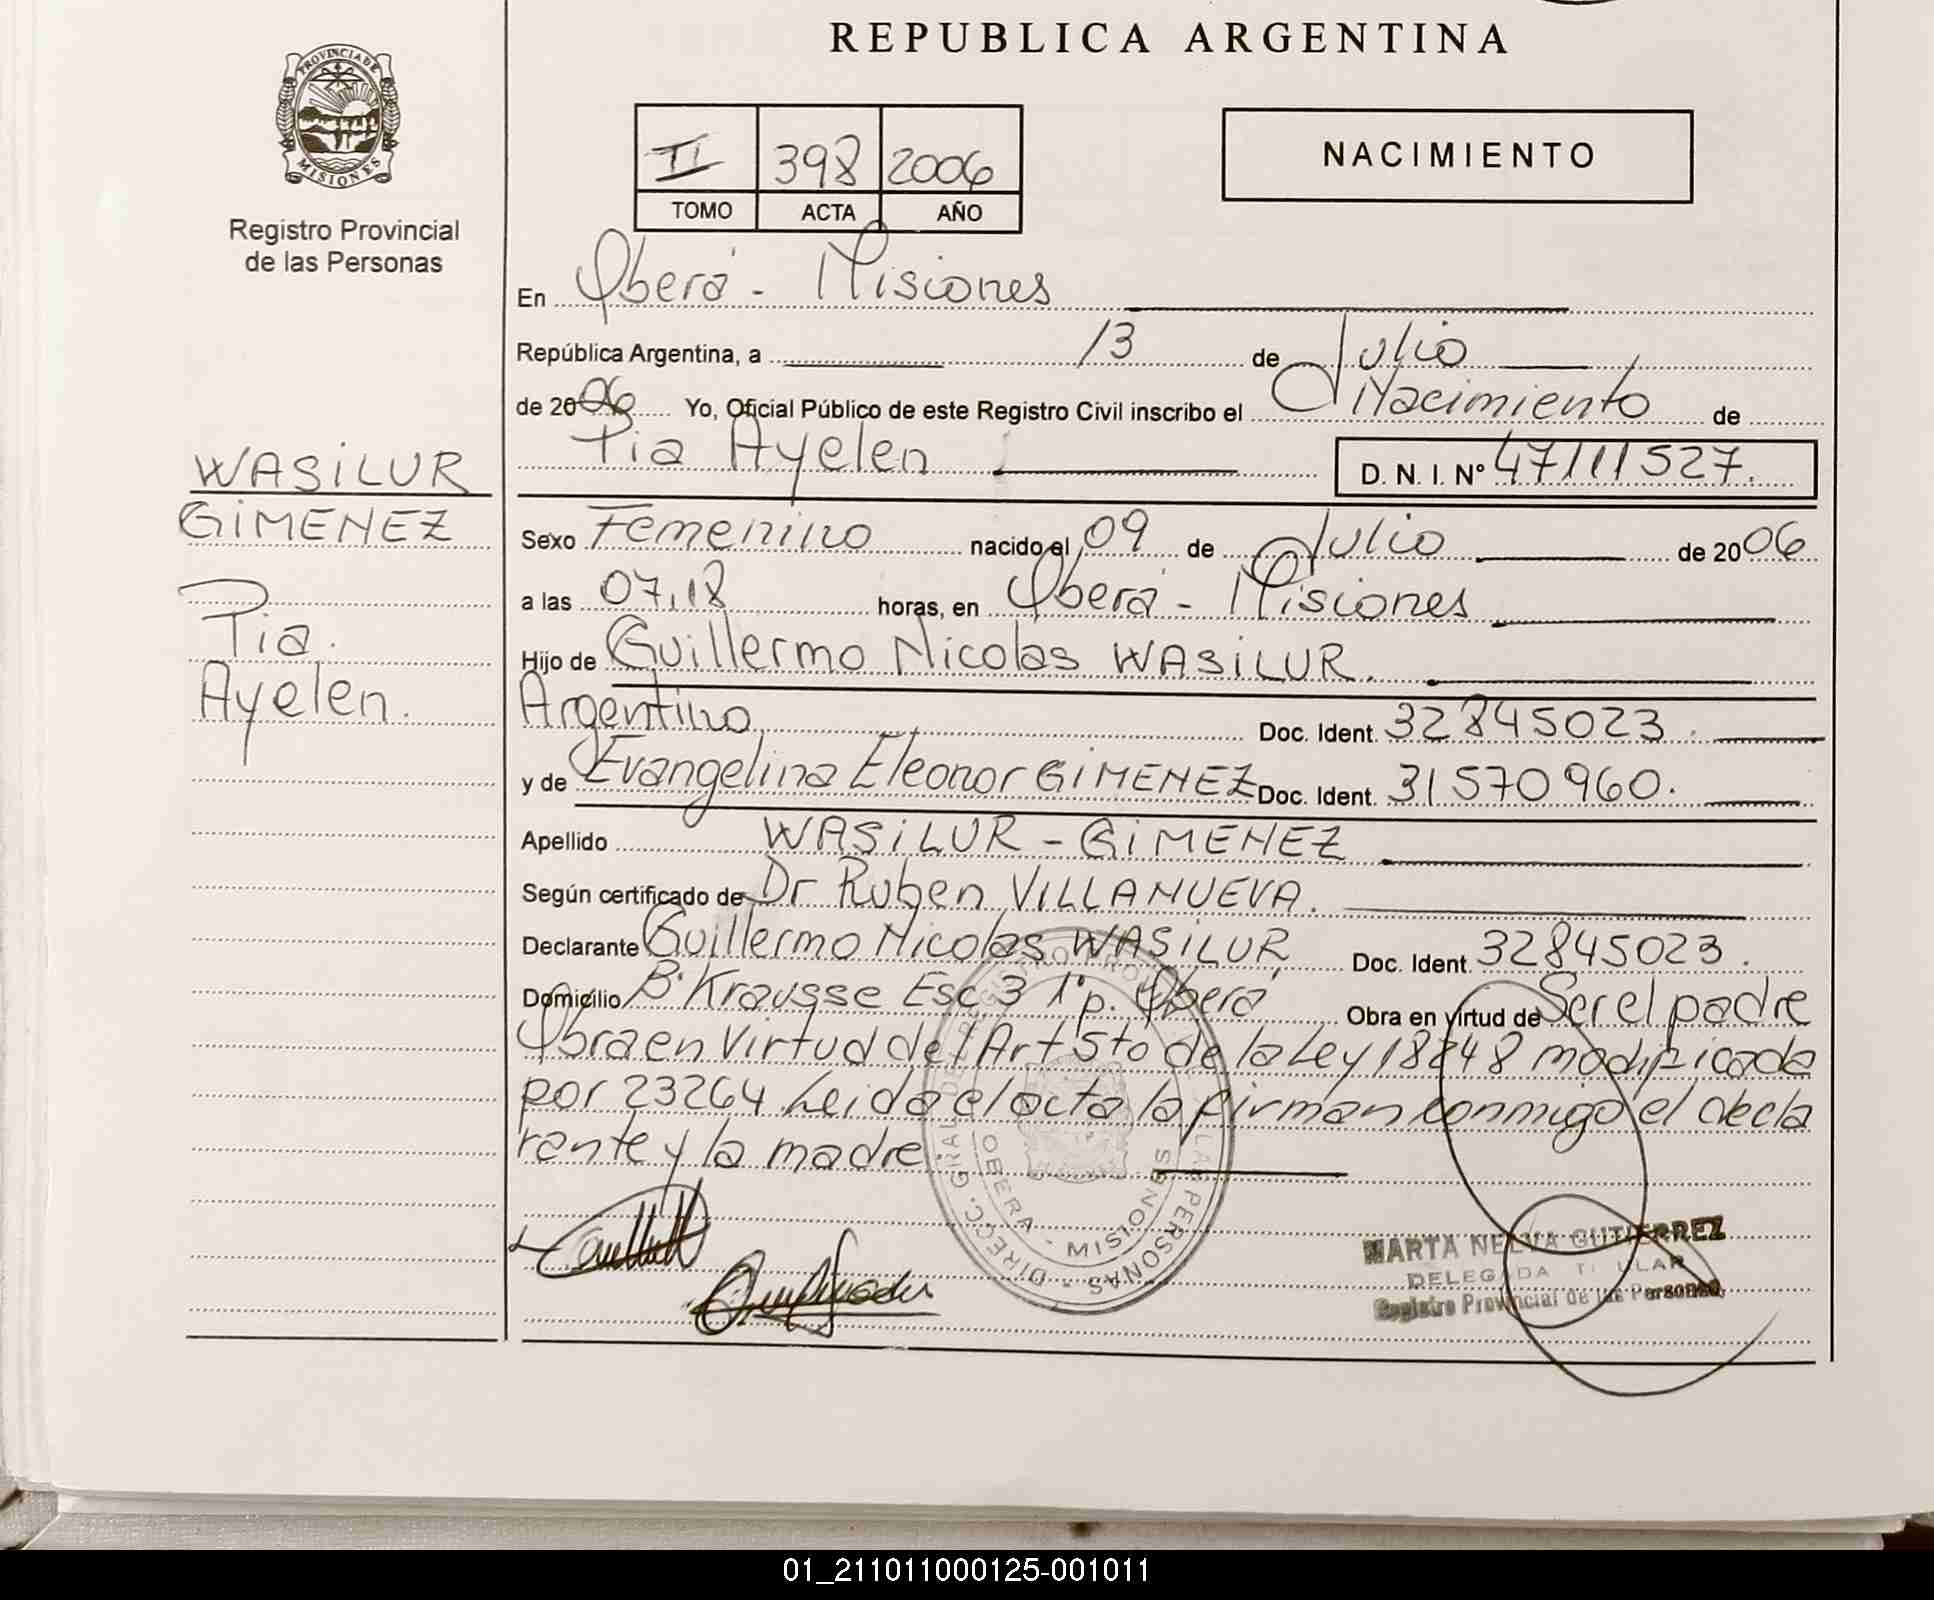 REPUBLICA ARGENTINA
PROVINCIA DE
MISIONES
Registro Provincial
de las Personas
II 398 2006
TOMO ACTA AÑO
NACIMIENTO
En Oberá - Misiones
República Argentina, a 13 de Julio
de 2006 Yo, Oficial Público de este Registro Civil inscribo el Nacimiento de
Pia Ayelen D. N. I. Nº 47111527.
WASiLUR
GiMENEZ
Pia.
Ayelen.
Sexo Femenino nacido el 09 de Julio de 2006
a las 07,18 horas, en Oberá - Misiones
Hijo de Guillermo Nicolas WASiLUR.
Argentino Doc. Ident. 32845023.
y de Evangelina Eleonor GiMENEZ Doc. Ident. 31570960.
Apellido WASiLUR - GiMENEZ
Según certificado de Dr Ruben ViLLANUEVA.
Declarante Guillermo Nicolas WASiLUR Doc. Ident. 32845023.
Domicilio Bº Krausse Esc 3 1º p. Oberá Obra en virtud de Ser el padre
Obra en Virtud del Art 5to de la Ley 18248 modificada
por 23264 Leida el acta la firman conmigo el decla
rante y la madre
OBERA - MISIONES
MARTA NELVA GUTIERREZ
DELEGADA TITULAR
Registro Provincial de las Personas
01_211011000125-001011